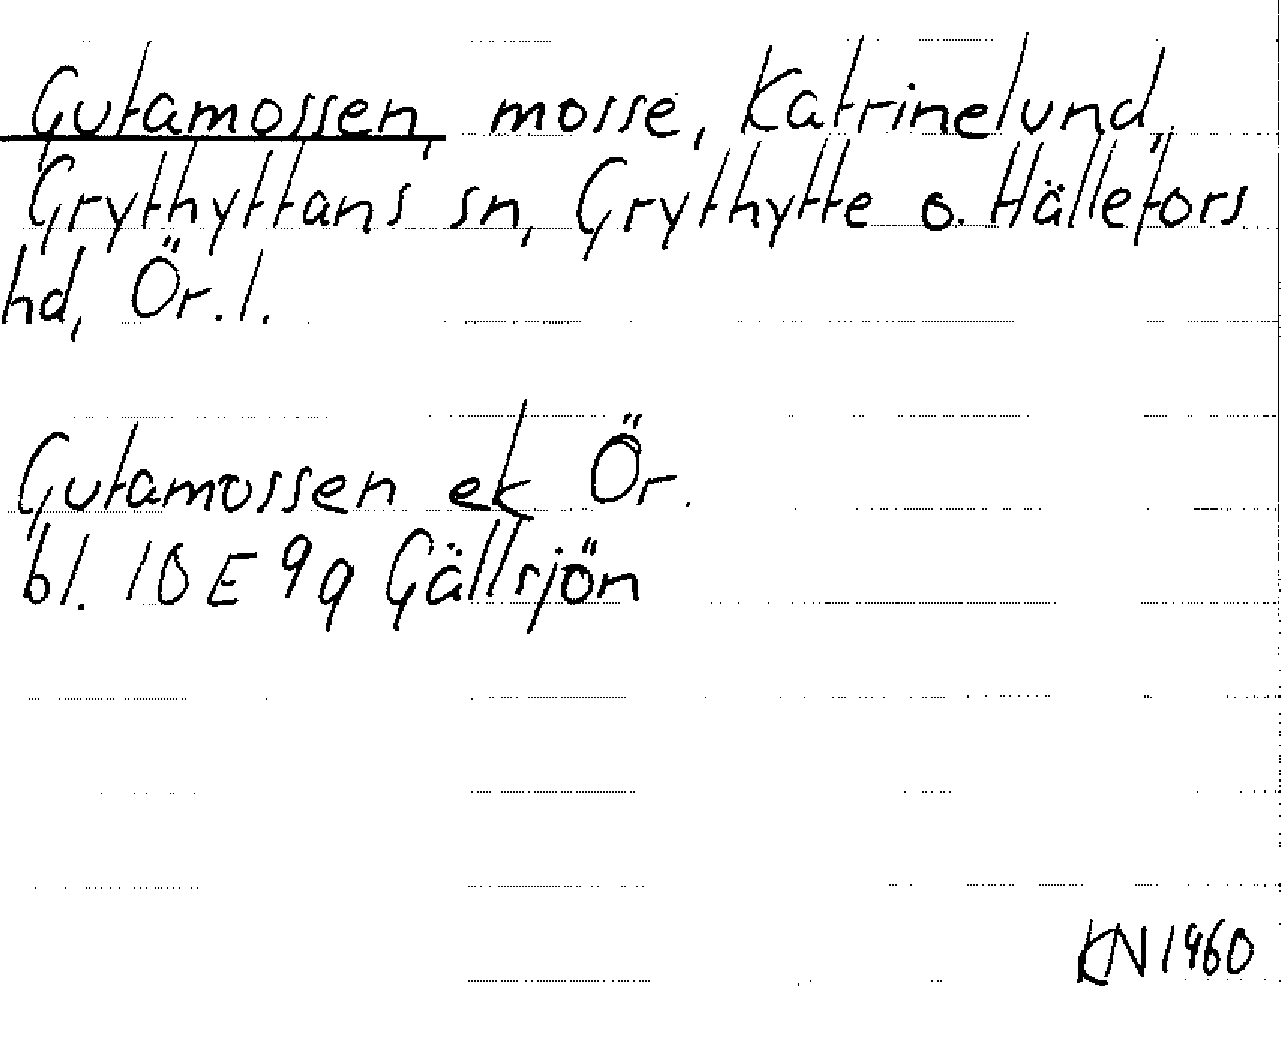 Gutamossen, mosse, Katrinelund,
Grythyttans sn, Grythytte o. Hällefors
hd, Ör. l.
Gutamossen ek Ör.
bl. 10 E 9g Gällsjön
KN 1960